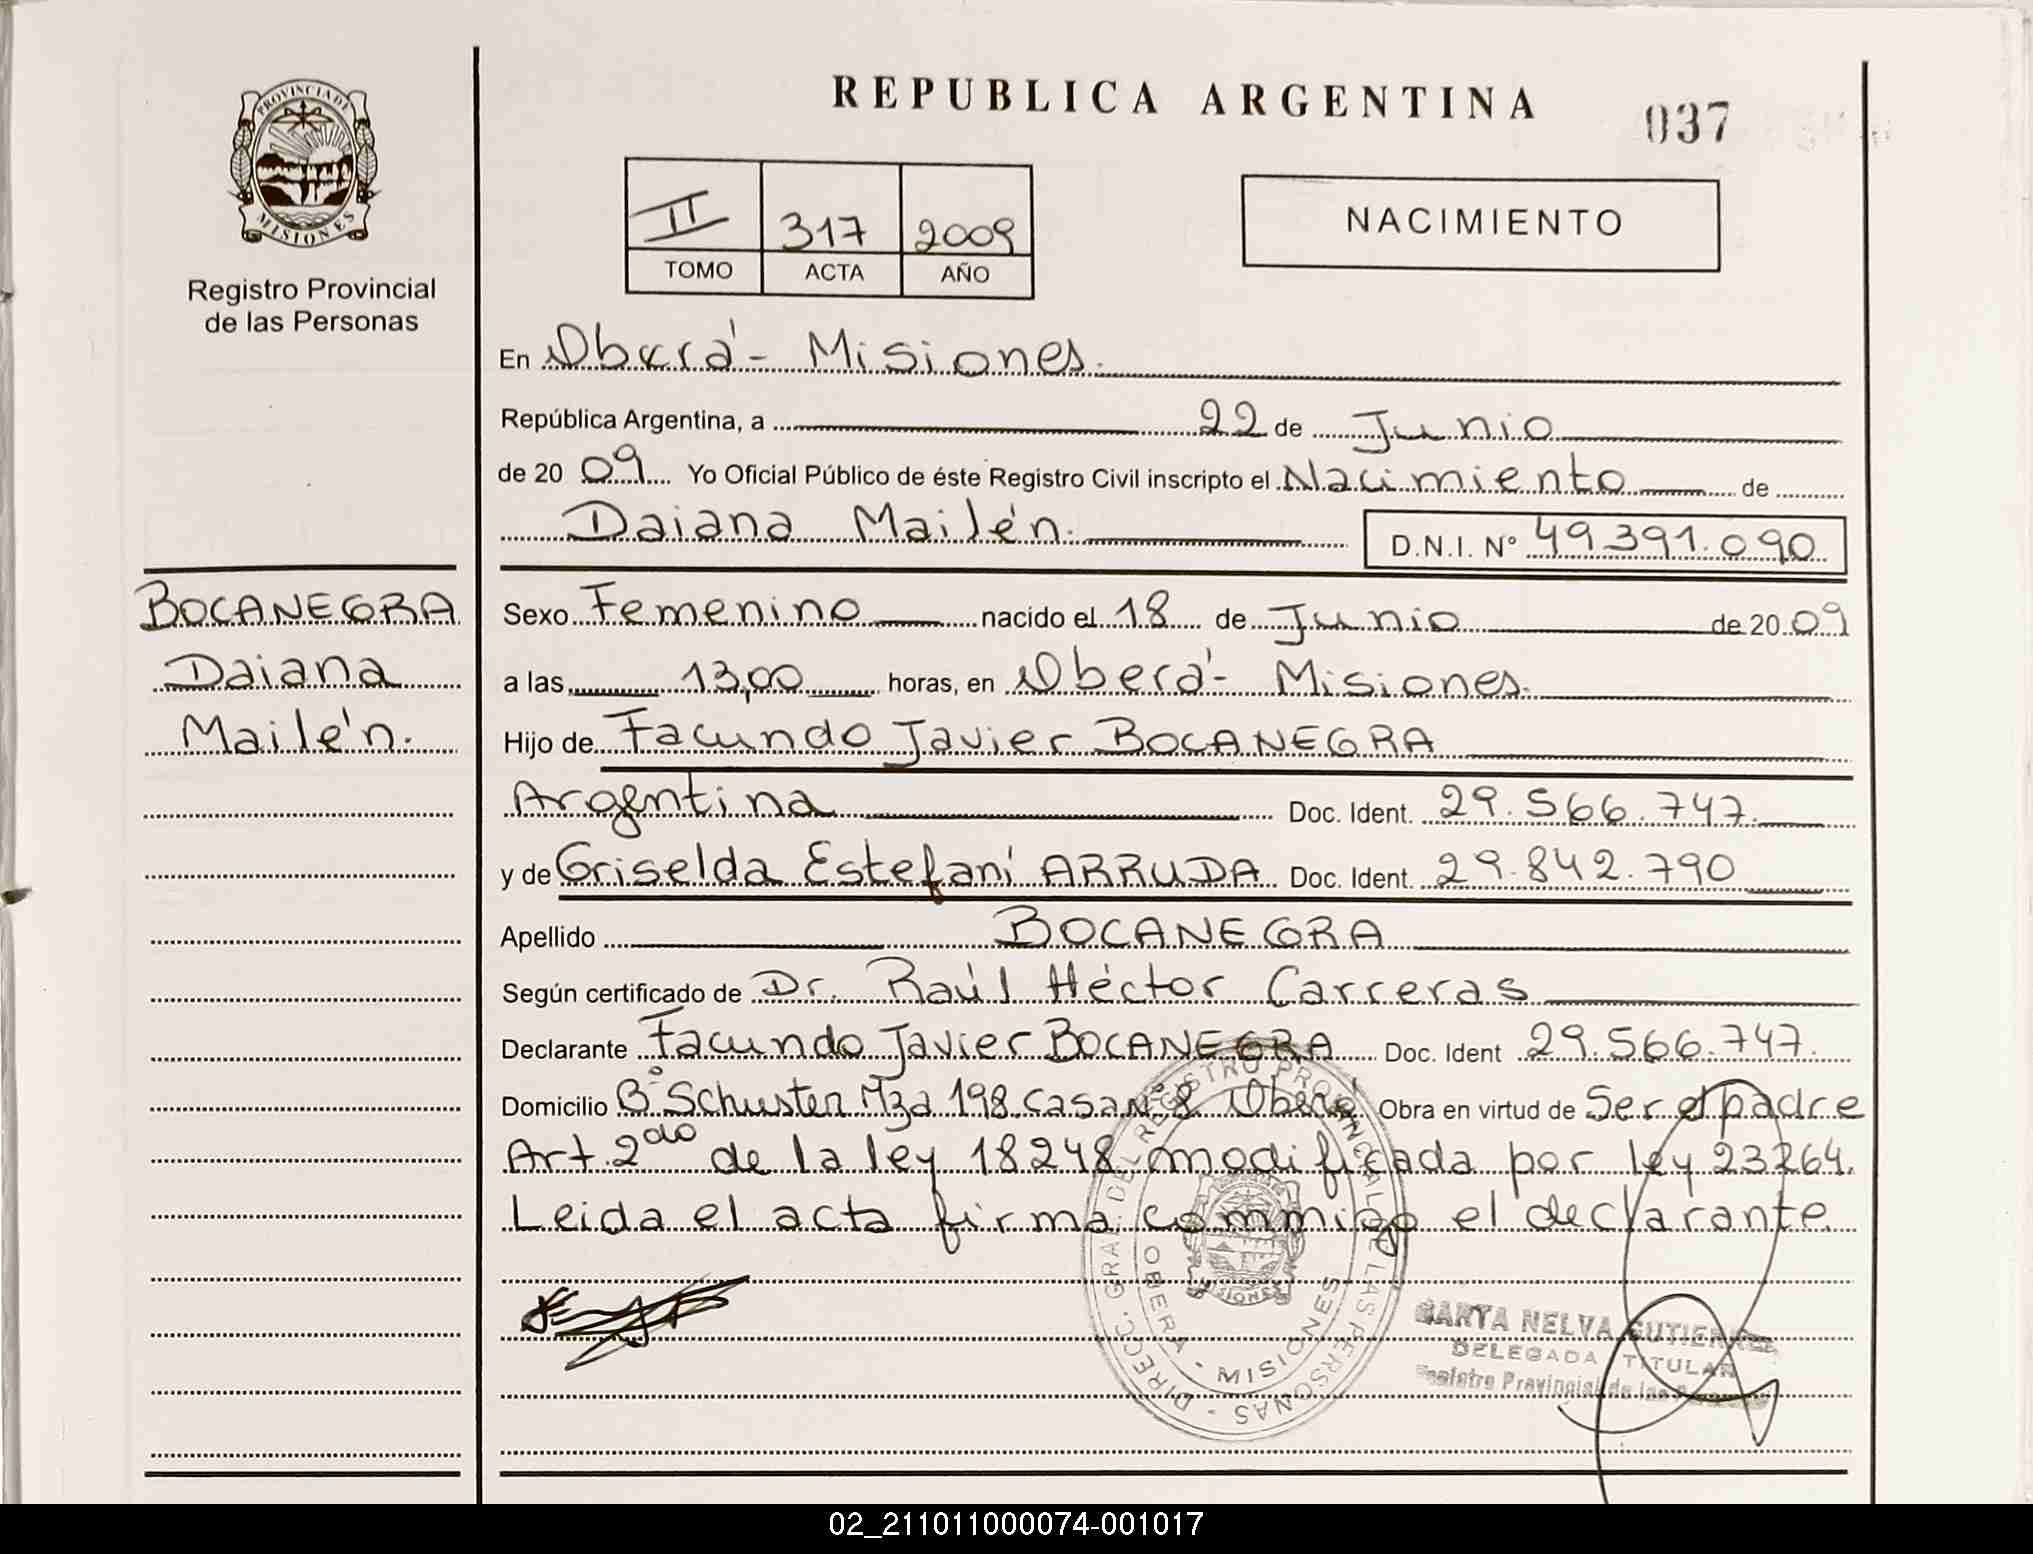 REPUBLICA ARGENTINA
037
PROVINCIA DE
MISIONES
Registro Provincial
de las Personas
II 317 2009
TOMO ACTA AÑO
NACIMIENTO
En Oberá - Misiones.
República Argentina, a 22 de Junio
de 20 09 Yo Oficial Público de éste Registro Civil inscripto el Nacimiento de
Daiana Mailén. D.N.I. Nº 49.391.090
BOCANEGRA
Daiana
Mailén.
Sexo Femenino nacido el 18 de Junio de 20 09
a las 13,00 horas, en Oberá - Misiones.
Hijo de Facundo Javier BOCANEGRA
Argentina Doc. Ident. 29.566.747.
y de Griselda Estefani ARRUDA Doc. Ident. 29.842.790
Apellido BOCANEGRA
Según certificado de Dr. Raúl Héctor Carreras
Declarante Facundo Javier BOCANEGRA Doc. Ident 29.566.747.
Domicilio Bº Schuster Mza 198 casa Nº 8 Oberá Obra en virtud de Ser el padre
Art 2do de la ley 18248 modificada por ley 23264.
Leida el acta firma commigo el declarante
DIRECC. GRAL DEL REGISTRO PROVINCIAL DE LAS PERSONAS
OBERA - MISIONES
MISIONES
MARTA NELVA GUTIERREZ
DELEGADA TITULAR
Registro Provincial de las Personas
02_211011000074-001017